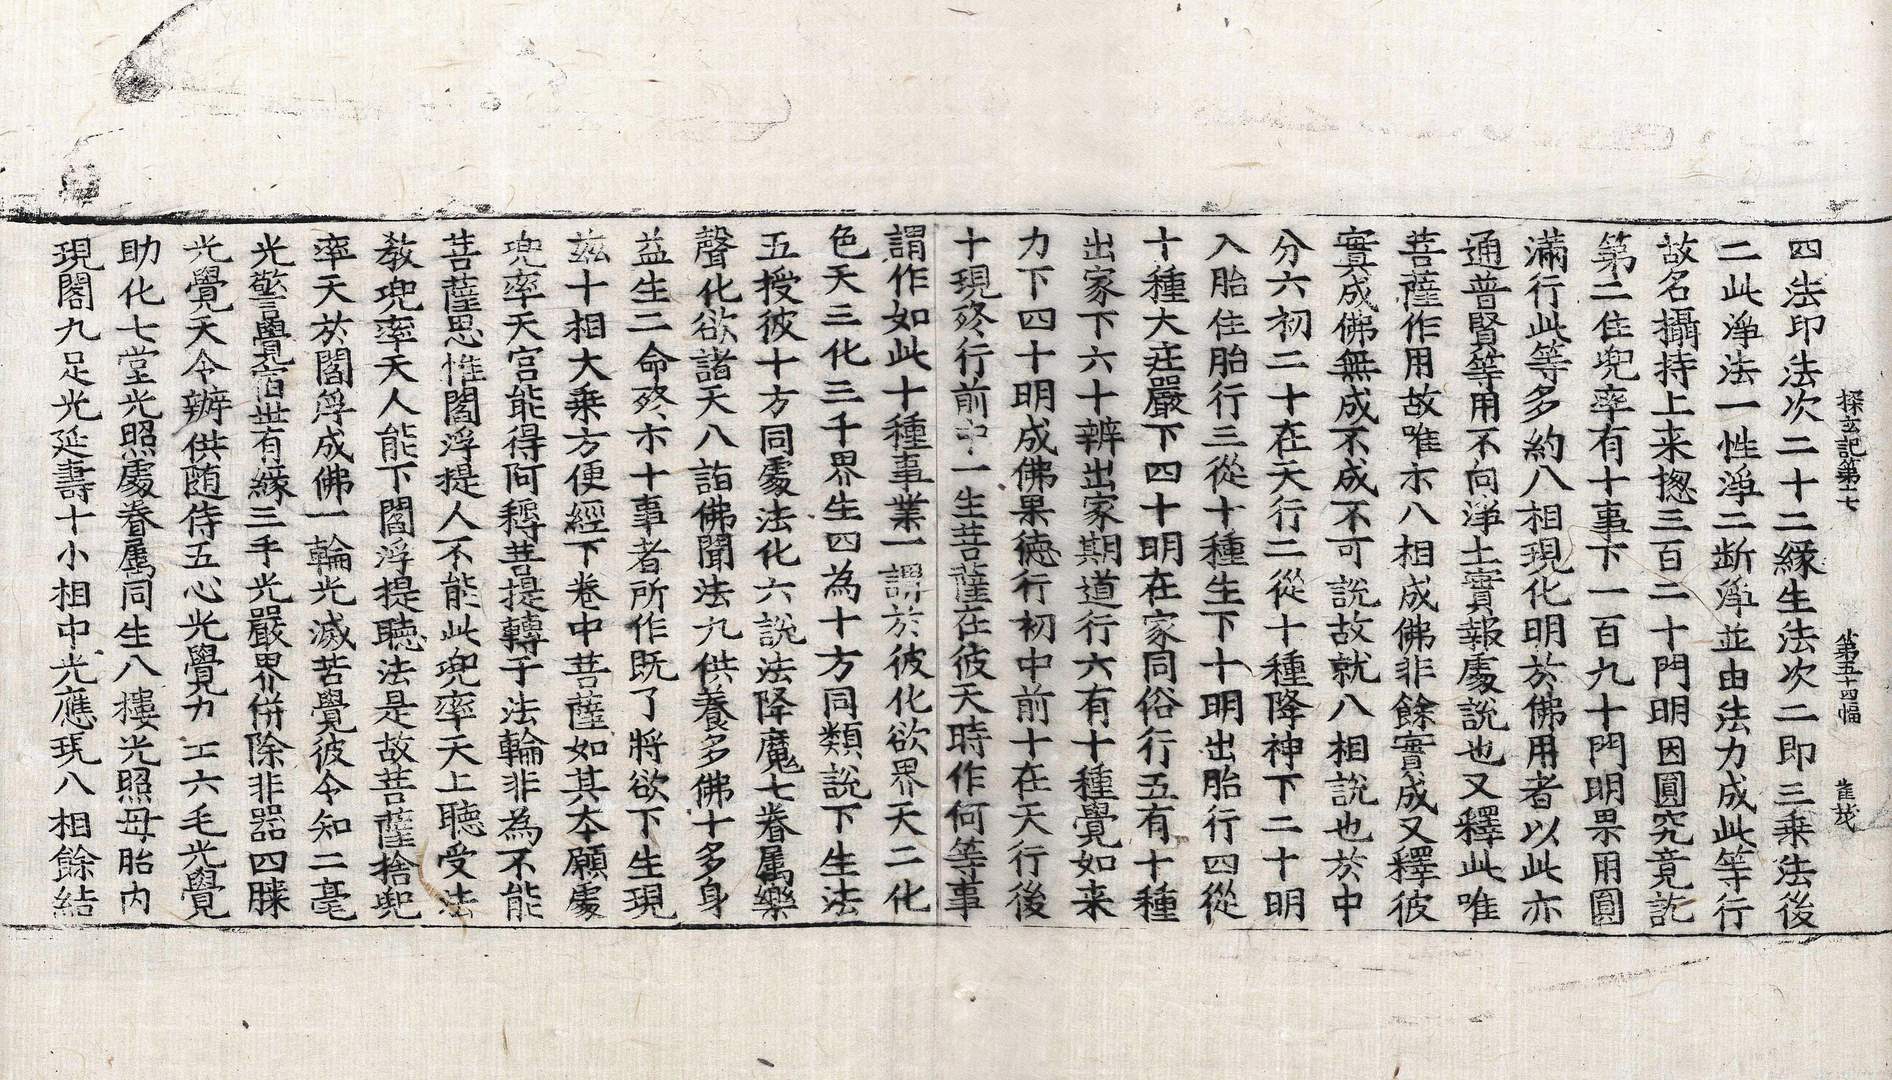 探玄記第十七 第五十四幅 崔茂
四法印法次二十二緣生法次二即三乘法後
二此淨法一性淨二断淨並由法力成此等行
故名攝持上来揔三百二十門明因圓究竟訖
第二住兜率有十事下一百九十門明果用圓
滿行此等多約八相現化明於佛用者以此亦
通普賢等用不向淨土實報處說也又釋此唯
菩薩作用故唯示八相成佛非餘實成又釋彼
實成佛無成不成不可說故就八相說也於中
分六初二十在天行二從十種降神下二十明
入胎住胎行三從十種生下十明出胎行四從
十種大莊嚴下四十明在家同俗行五有十種
出家下六十辨出家期道行六有十種覺如来
力下四十明成佛果德行初中前十在天行後
十現終行前中一生菩薩在彼天時作何等事
謂作如此十種事業一謂於彼化欲界天二化
色天三化三千界生四為十方同類說下生法
五授彼十方同處法化六說法降魔七眷属樂
聲化欲諸天八詣佛聞法九供養多佛十多身
益生二命終示十事者所作既了將欲下生現
茲十相大乘方便經下卷中菩薩如其本願處
兜率天宮能得阿耨菩提轉于法輪非為不能
菩薩思惟閻浮提人不能此兜率天上聽受法
教兜率天人能下閻浮提聽法是故菩薩捨兜
率天於閻浮成佛一輪光滅苦覺彼令知二毫
光警覺宿世有緣三手光嚴界併除非器四膝
光覺天令辦供随侍五心光覺力士六毛光覺
助化七堂光照處眷属同生八樓光照母胎内
現閣九足光延壽十小相中光應現八相餘結